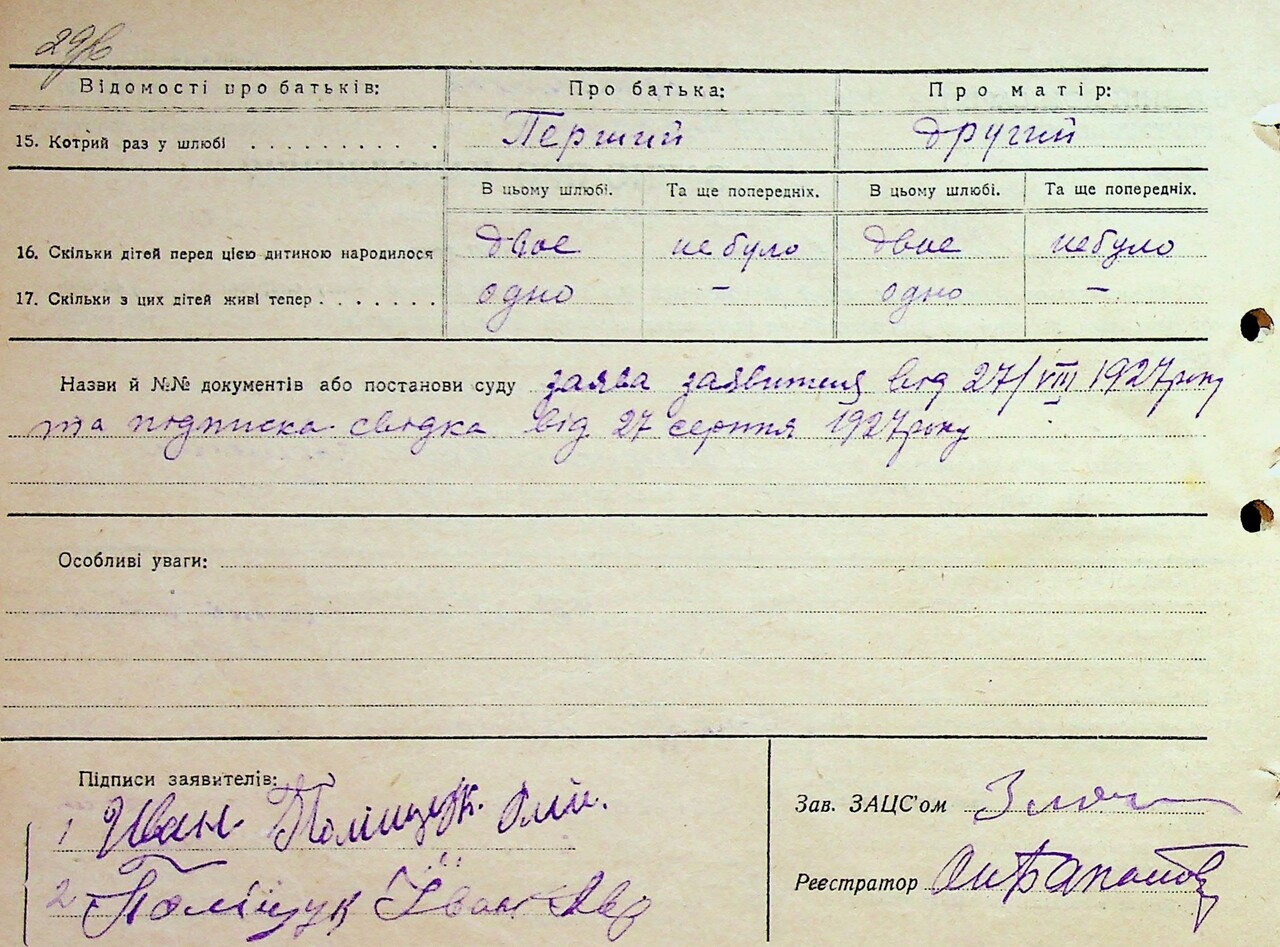 29
Відомості про батьків: Про батька: Про матір:
15. Котрий раз у шлюбі . . . . . . . . . . Перший другий
В цьому шлюбі. Та ще попередніх. В цьому шлюбі. Та ще попередніх.
16. Скільки дітей перед цією дитиною народилося двое не було двое небуло
17. Скільки з цих дітей живі тепер . . . . . . . одно – одно –
Назви й №№ документів або постанови суду заява заявителя від 27/VIII 1927 року
та підписка свідка від 27 серпня 1927 року
Особливі уваги:
Підписи заявителів:
1 Иван Поліщук
2 Поліщук Іван
Зав. ЗАЦС'ом
Реєстратор